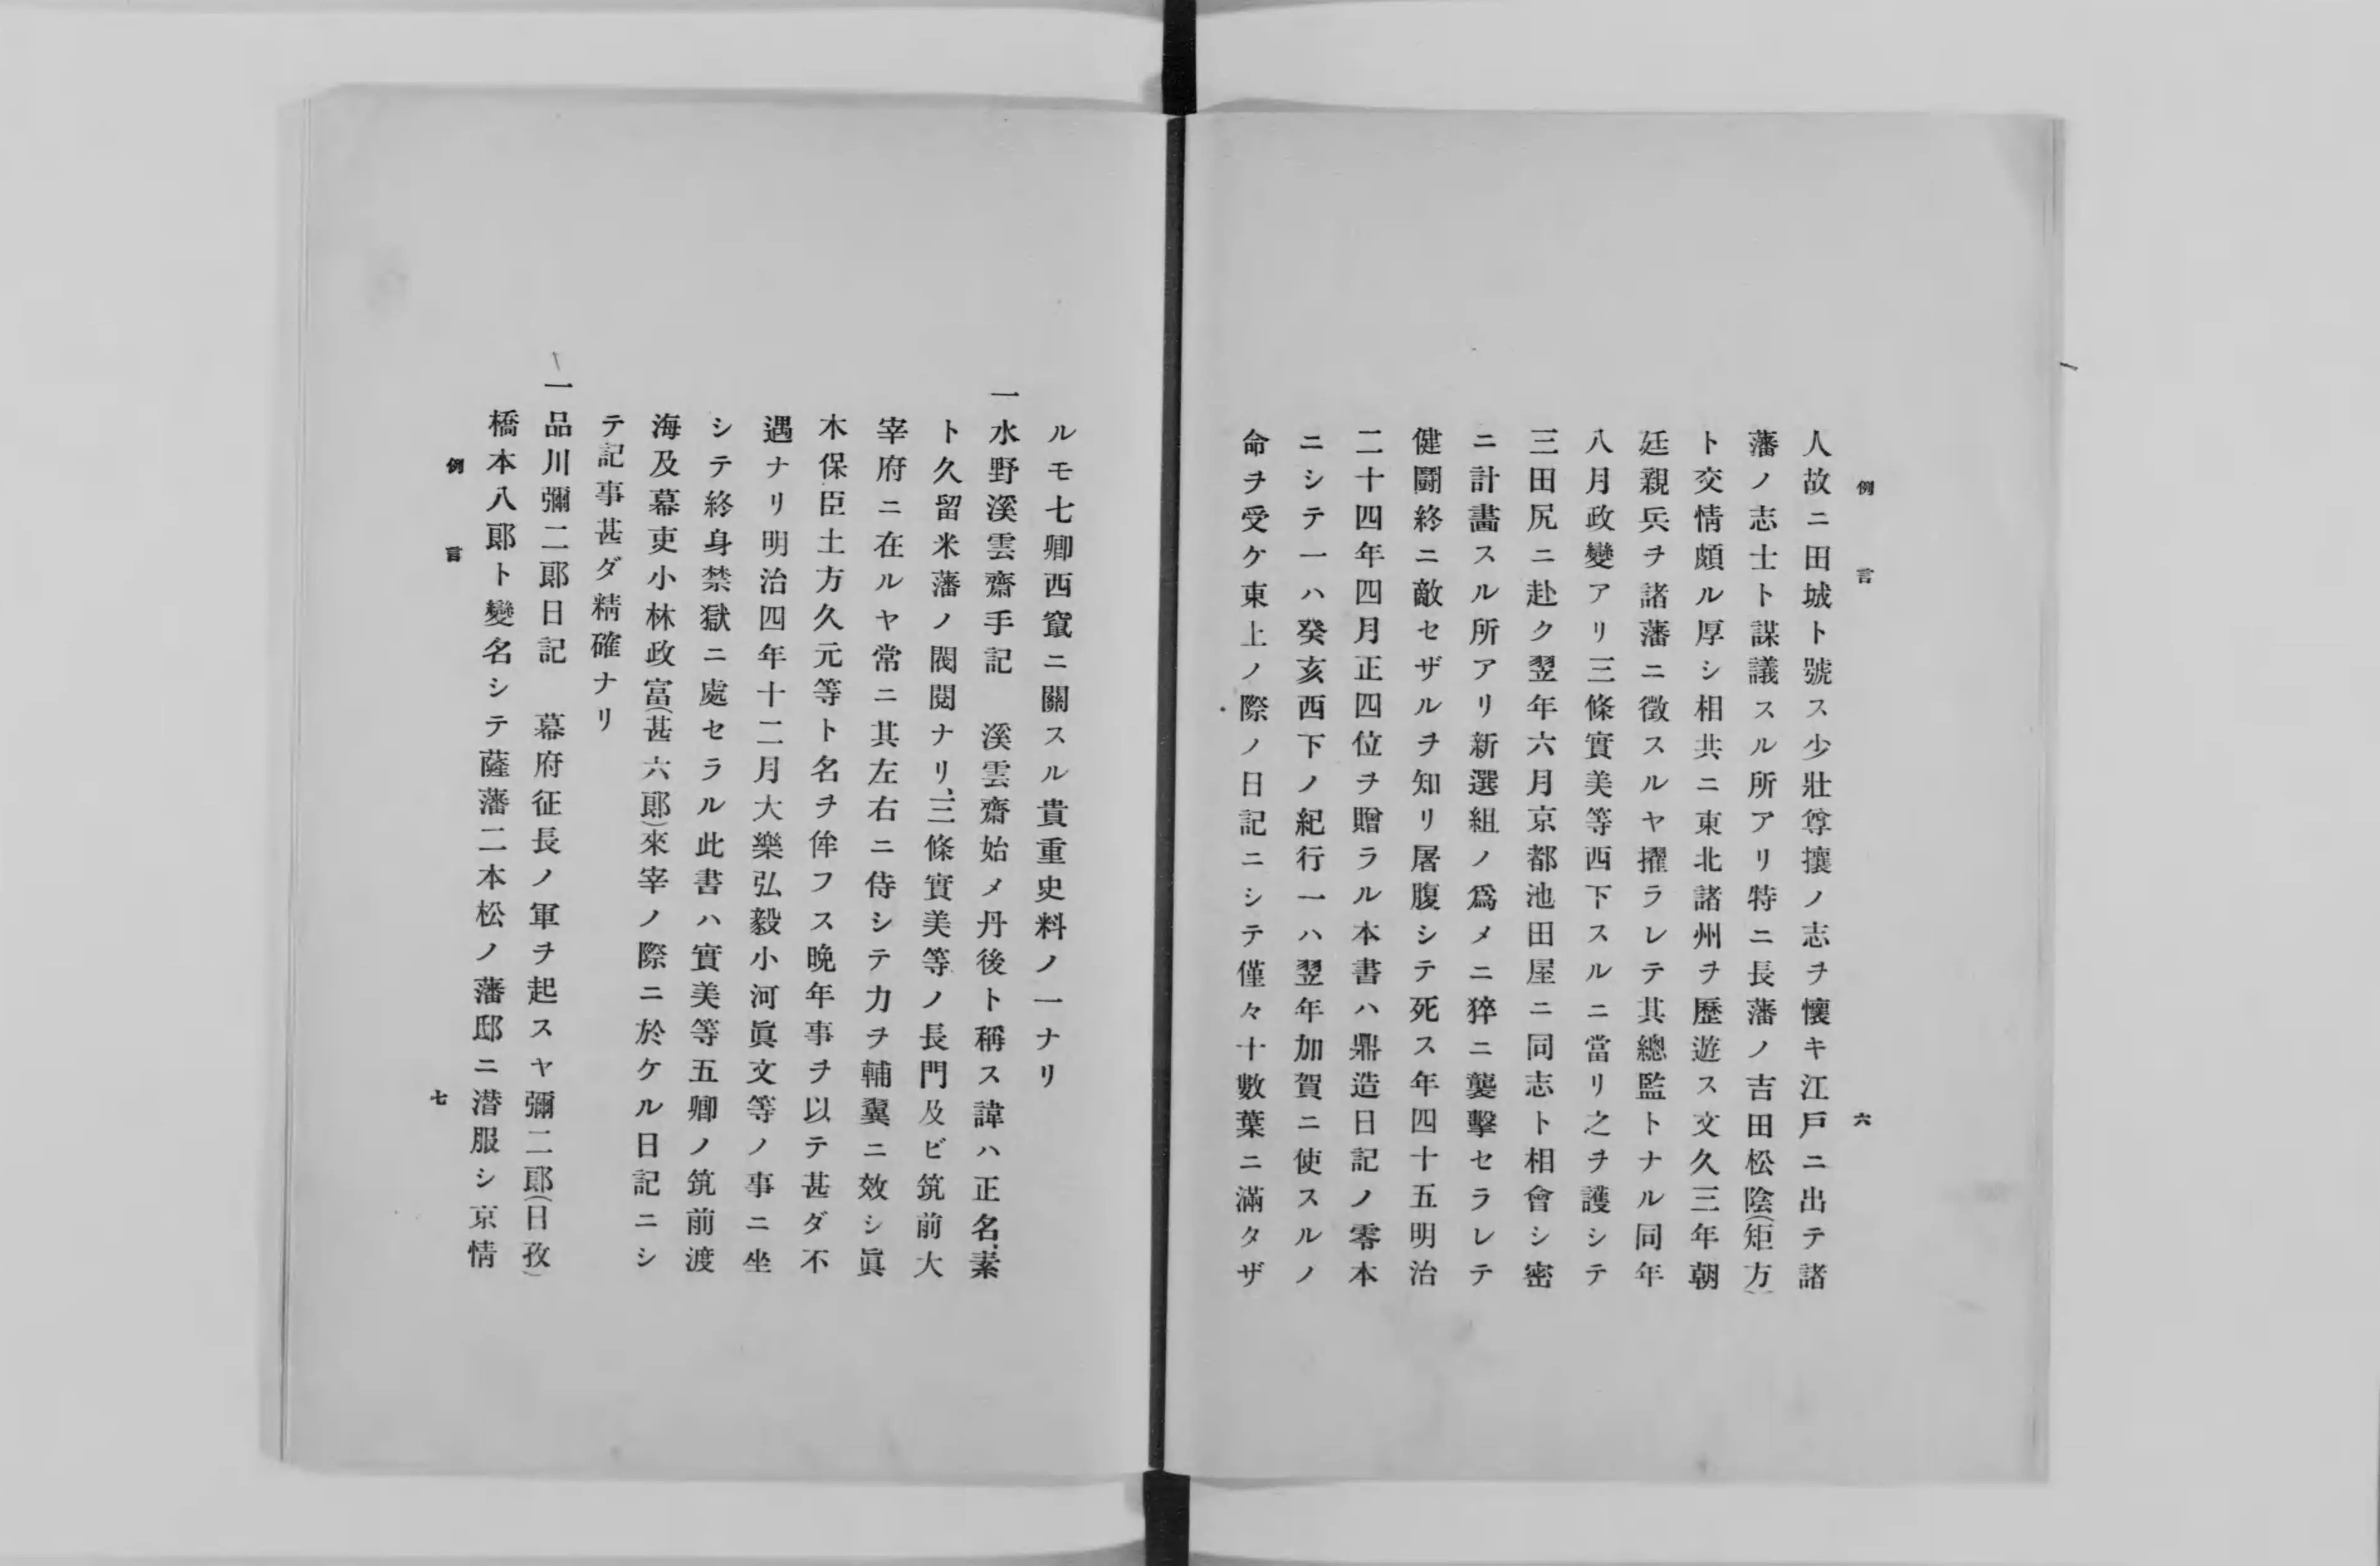 例言 六
人故ニ田城ト號ス少壯尊攘ノ志ヲ懷キ江戶ニ出テ諸
藩ノ志士ト謀議スル所アリ特ニ長藩ノ吉田松陰(矩方)
ト交情頗ル厚シ相共ニ東北諸州ヲ歷遊ス文久三年朝
廷親兵ヲ諸藩ニ徵スルヤ擢ラレテ其總監トナル同年
八月政變アリ三條實美等西下スルニ當リ之ヲ護シテ
三田尻ニ赴ク翌年六月京都池田屋ニ同志ト相會シ密
ニ計畵スル所アリ新選組ノ爲メニ猝ニ襲擊セラレテ
健鬪終ニ敵セザルヲ知リ屠腹シテ死ス年四十五明治
二十四年四月正四位ヲ贈ラル本書ハ鼎造日記ノ零本
ニシテ一ハ癸亥西下ノ紀行一ハ翌年加賀ニ使スルノ
命ヲ受ケ東上ノ際ノ日記ニシテ僅々十數葉ニ滿タザ
ルモ七卿西竄ニ關スル貴重史料ノ一ナリ
一水野溪雲齋手記　溪雲齋始メ丹後ト稱ス諱ハ正名、素
ト久留米藩ノ閥閱ナリ、三條實美等ノ長門及ビ筑前大
宰府ニ在ルヤ常ニ其左右ニ侍シテ力ヲ輔翼ニ效シ眞
木保臣土方久元等ト名ヲ侔フス晩年事ヲ以テ甚ダ不
遇ナリ明治四年十二月大樂弘毅小河眞文等ノ事ニ坐
シテ終身禁獄ニ處セラル此書ハ實美等五卿ノ筑前渡
海及幕吏小林政富(甚六郞)來宰ノ際ニ於ケル日記ニシ
テ記事甚ダ精確ナリ
一品川彌二郞日記　幕府征長ノ軍ヲ起スヤ彌二郞(日孜)
橋本八郞ト變名シテ薩藩二本松ノ藩邸ニ潜服シ京情
例言 七